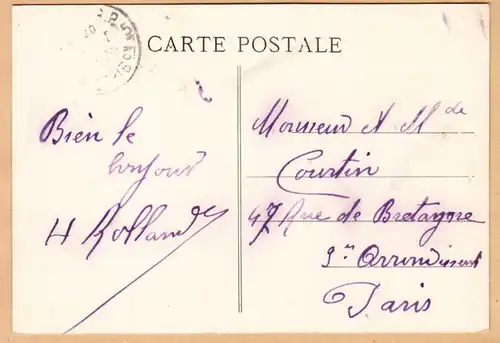 CARTE POSTALE
Bien le
bonjour
H Rolland
Monsieur et Mme
Courtin
47 Rue de Bretagne
3em Arrondissent
Paris